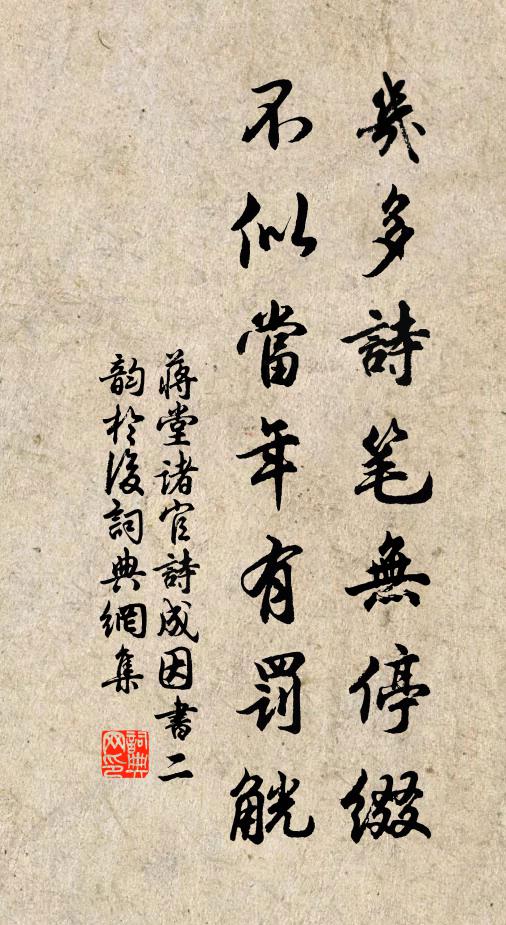 幾多詩笔無停綴
不似當年有罰觥
蔣堂诸官詩成因書二
韵於後詞典網集
詞典
网印